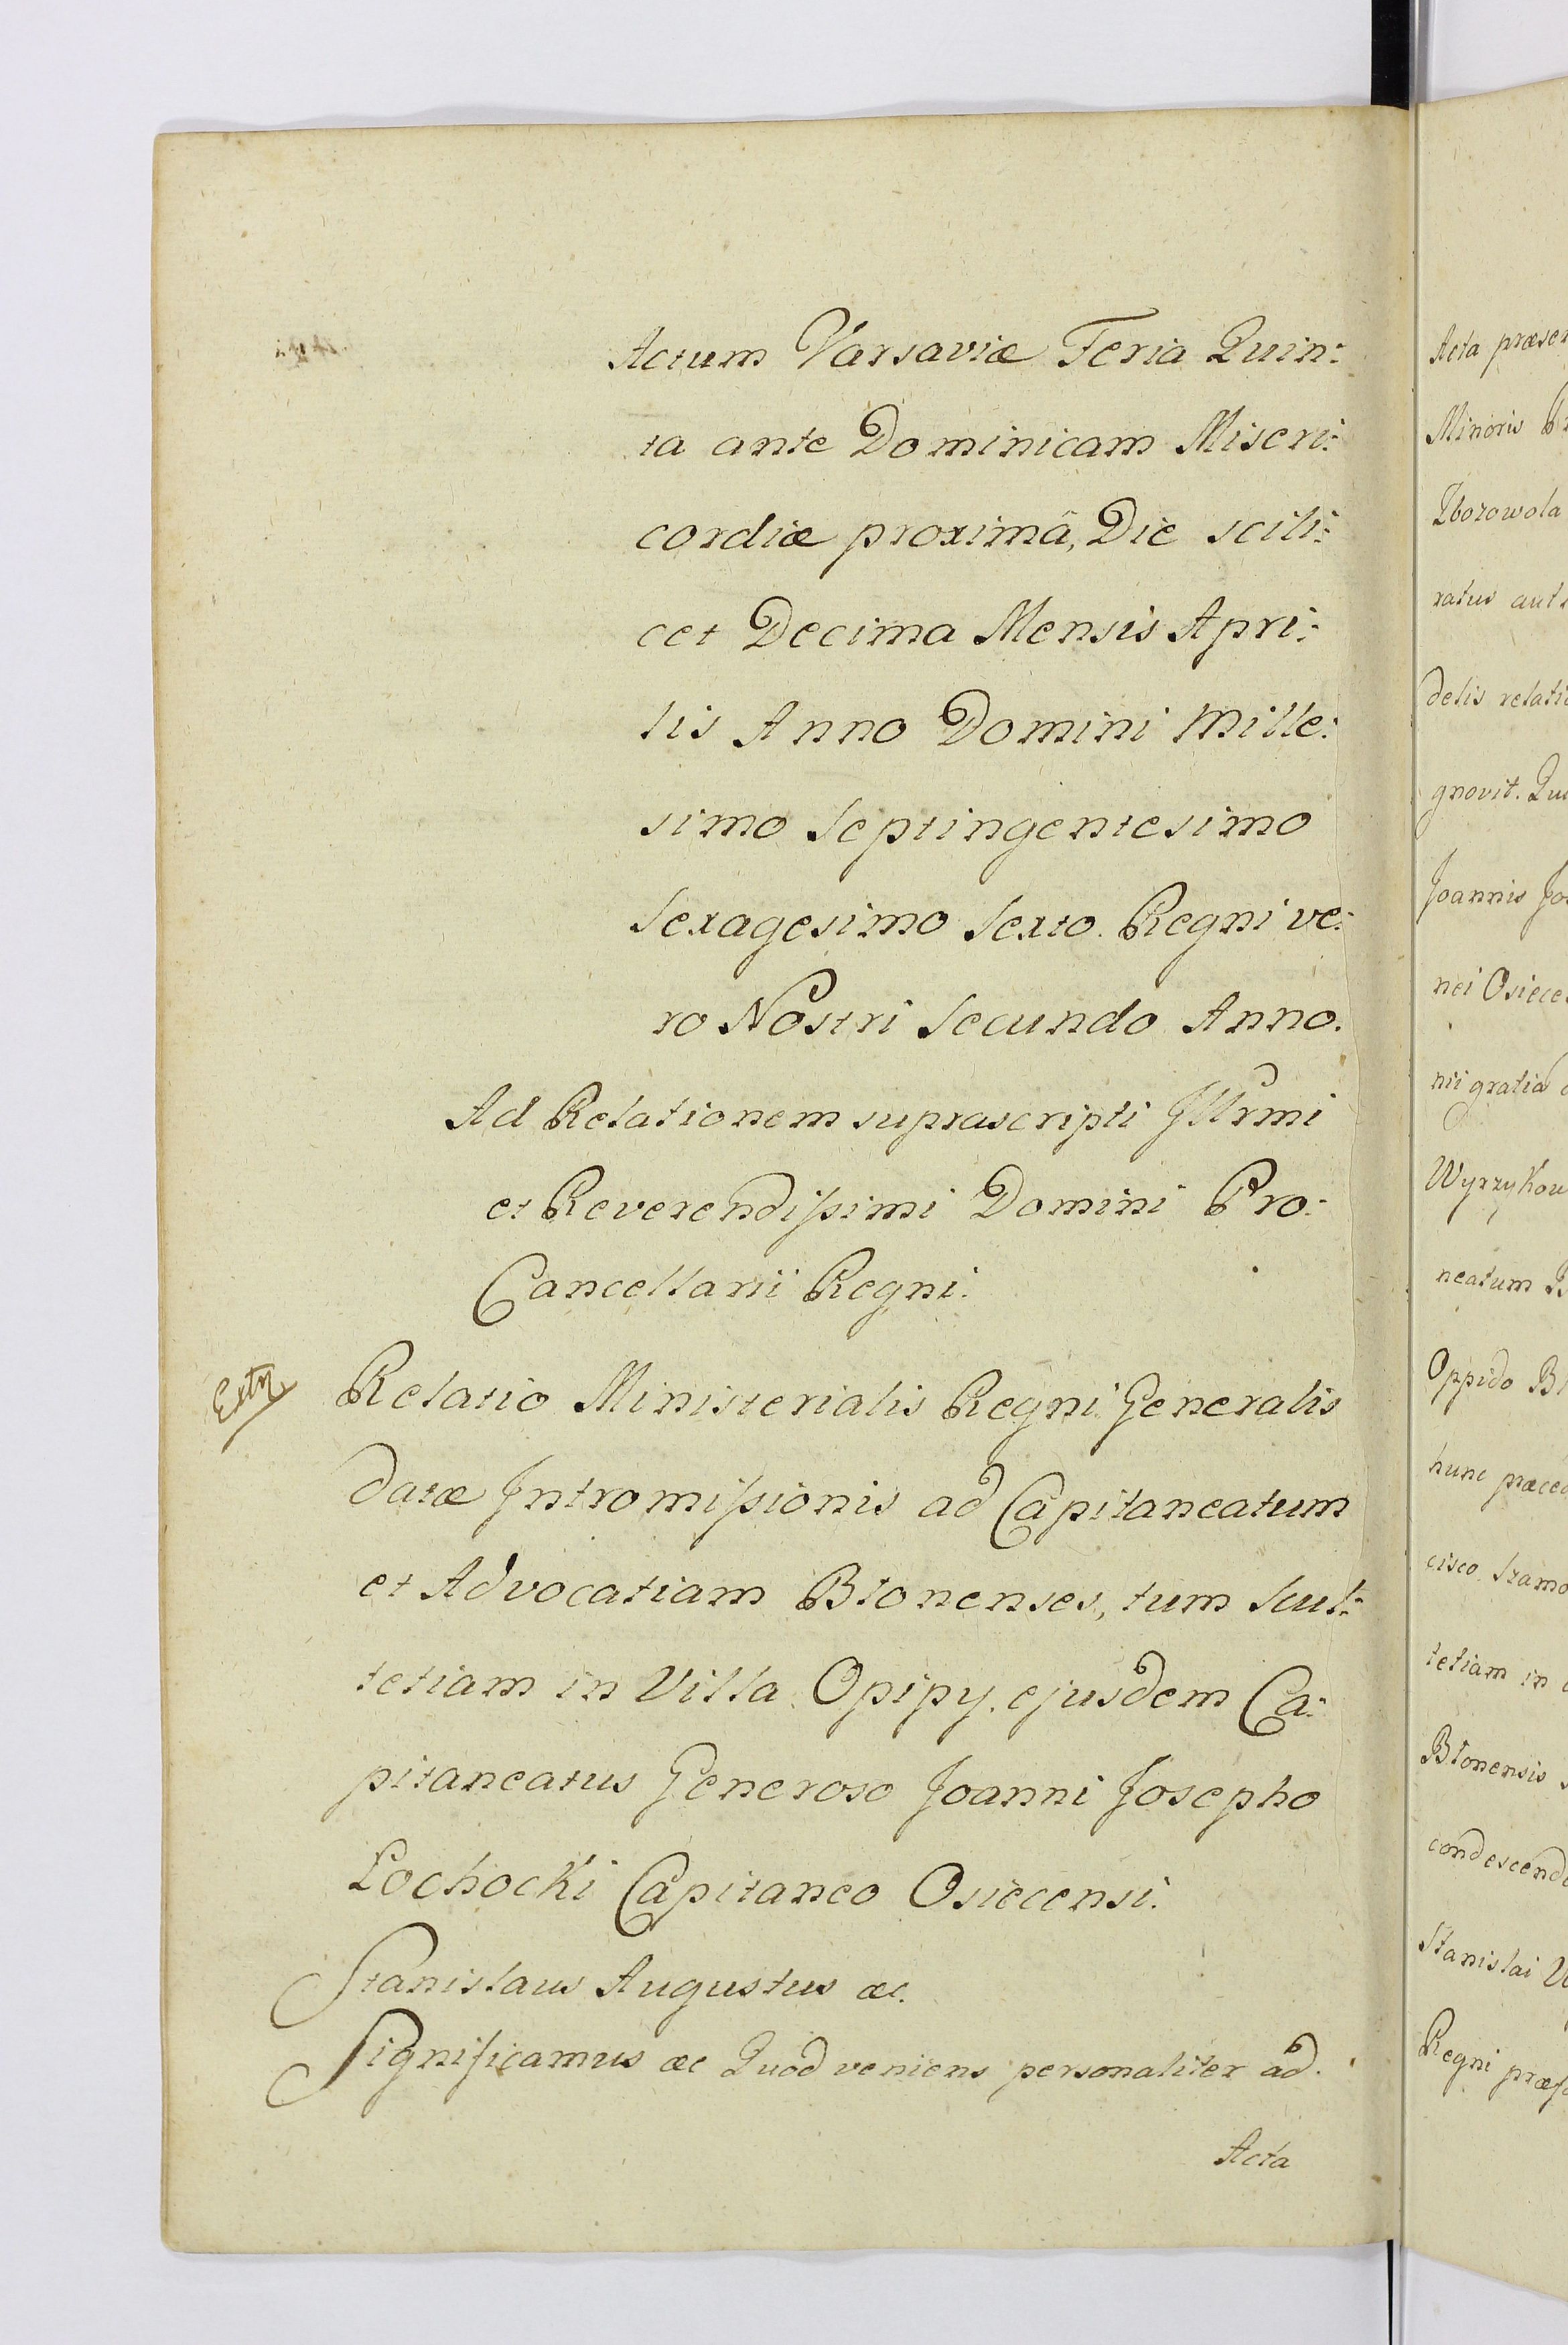 Actum Varsaviæ Feria Quin:
ta ante Dominicam Miseri:
cordiæ proximâ, Die scili:
cet Decima Mensis Apri:
lis Anno Domini Mille:
simo Septingentesimo
Sexagesimo Sexto. Regni ve:
ro Nostri Secundo Anno.
Ad Relationem suprascripti Jllrmi
et Reverendissimi Domini Pro:
Cancellarii Regni.
Relatio Ministerialis Regni Generalis
datæ Jntromissionis ad Capitaneatum
et Advocatiam Blonenses, tum Scul:
tetiam in Villa Opipy. ejusdem Ca:
pitaneatus Generoso Joanni Josepho
Łochocki Capitaneo Osiecensi.
Stanislaus Augustus æc.
Significamus æc Quod veniens personaliter ad.
Acta
Acta
Minoris
Zborowola
ratus
delis
gnovit.
Joannis
nei
nii gratia
neatum
Oppido
hunc
cisco
tetiam in
Blonensis
Stanislai
Regni